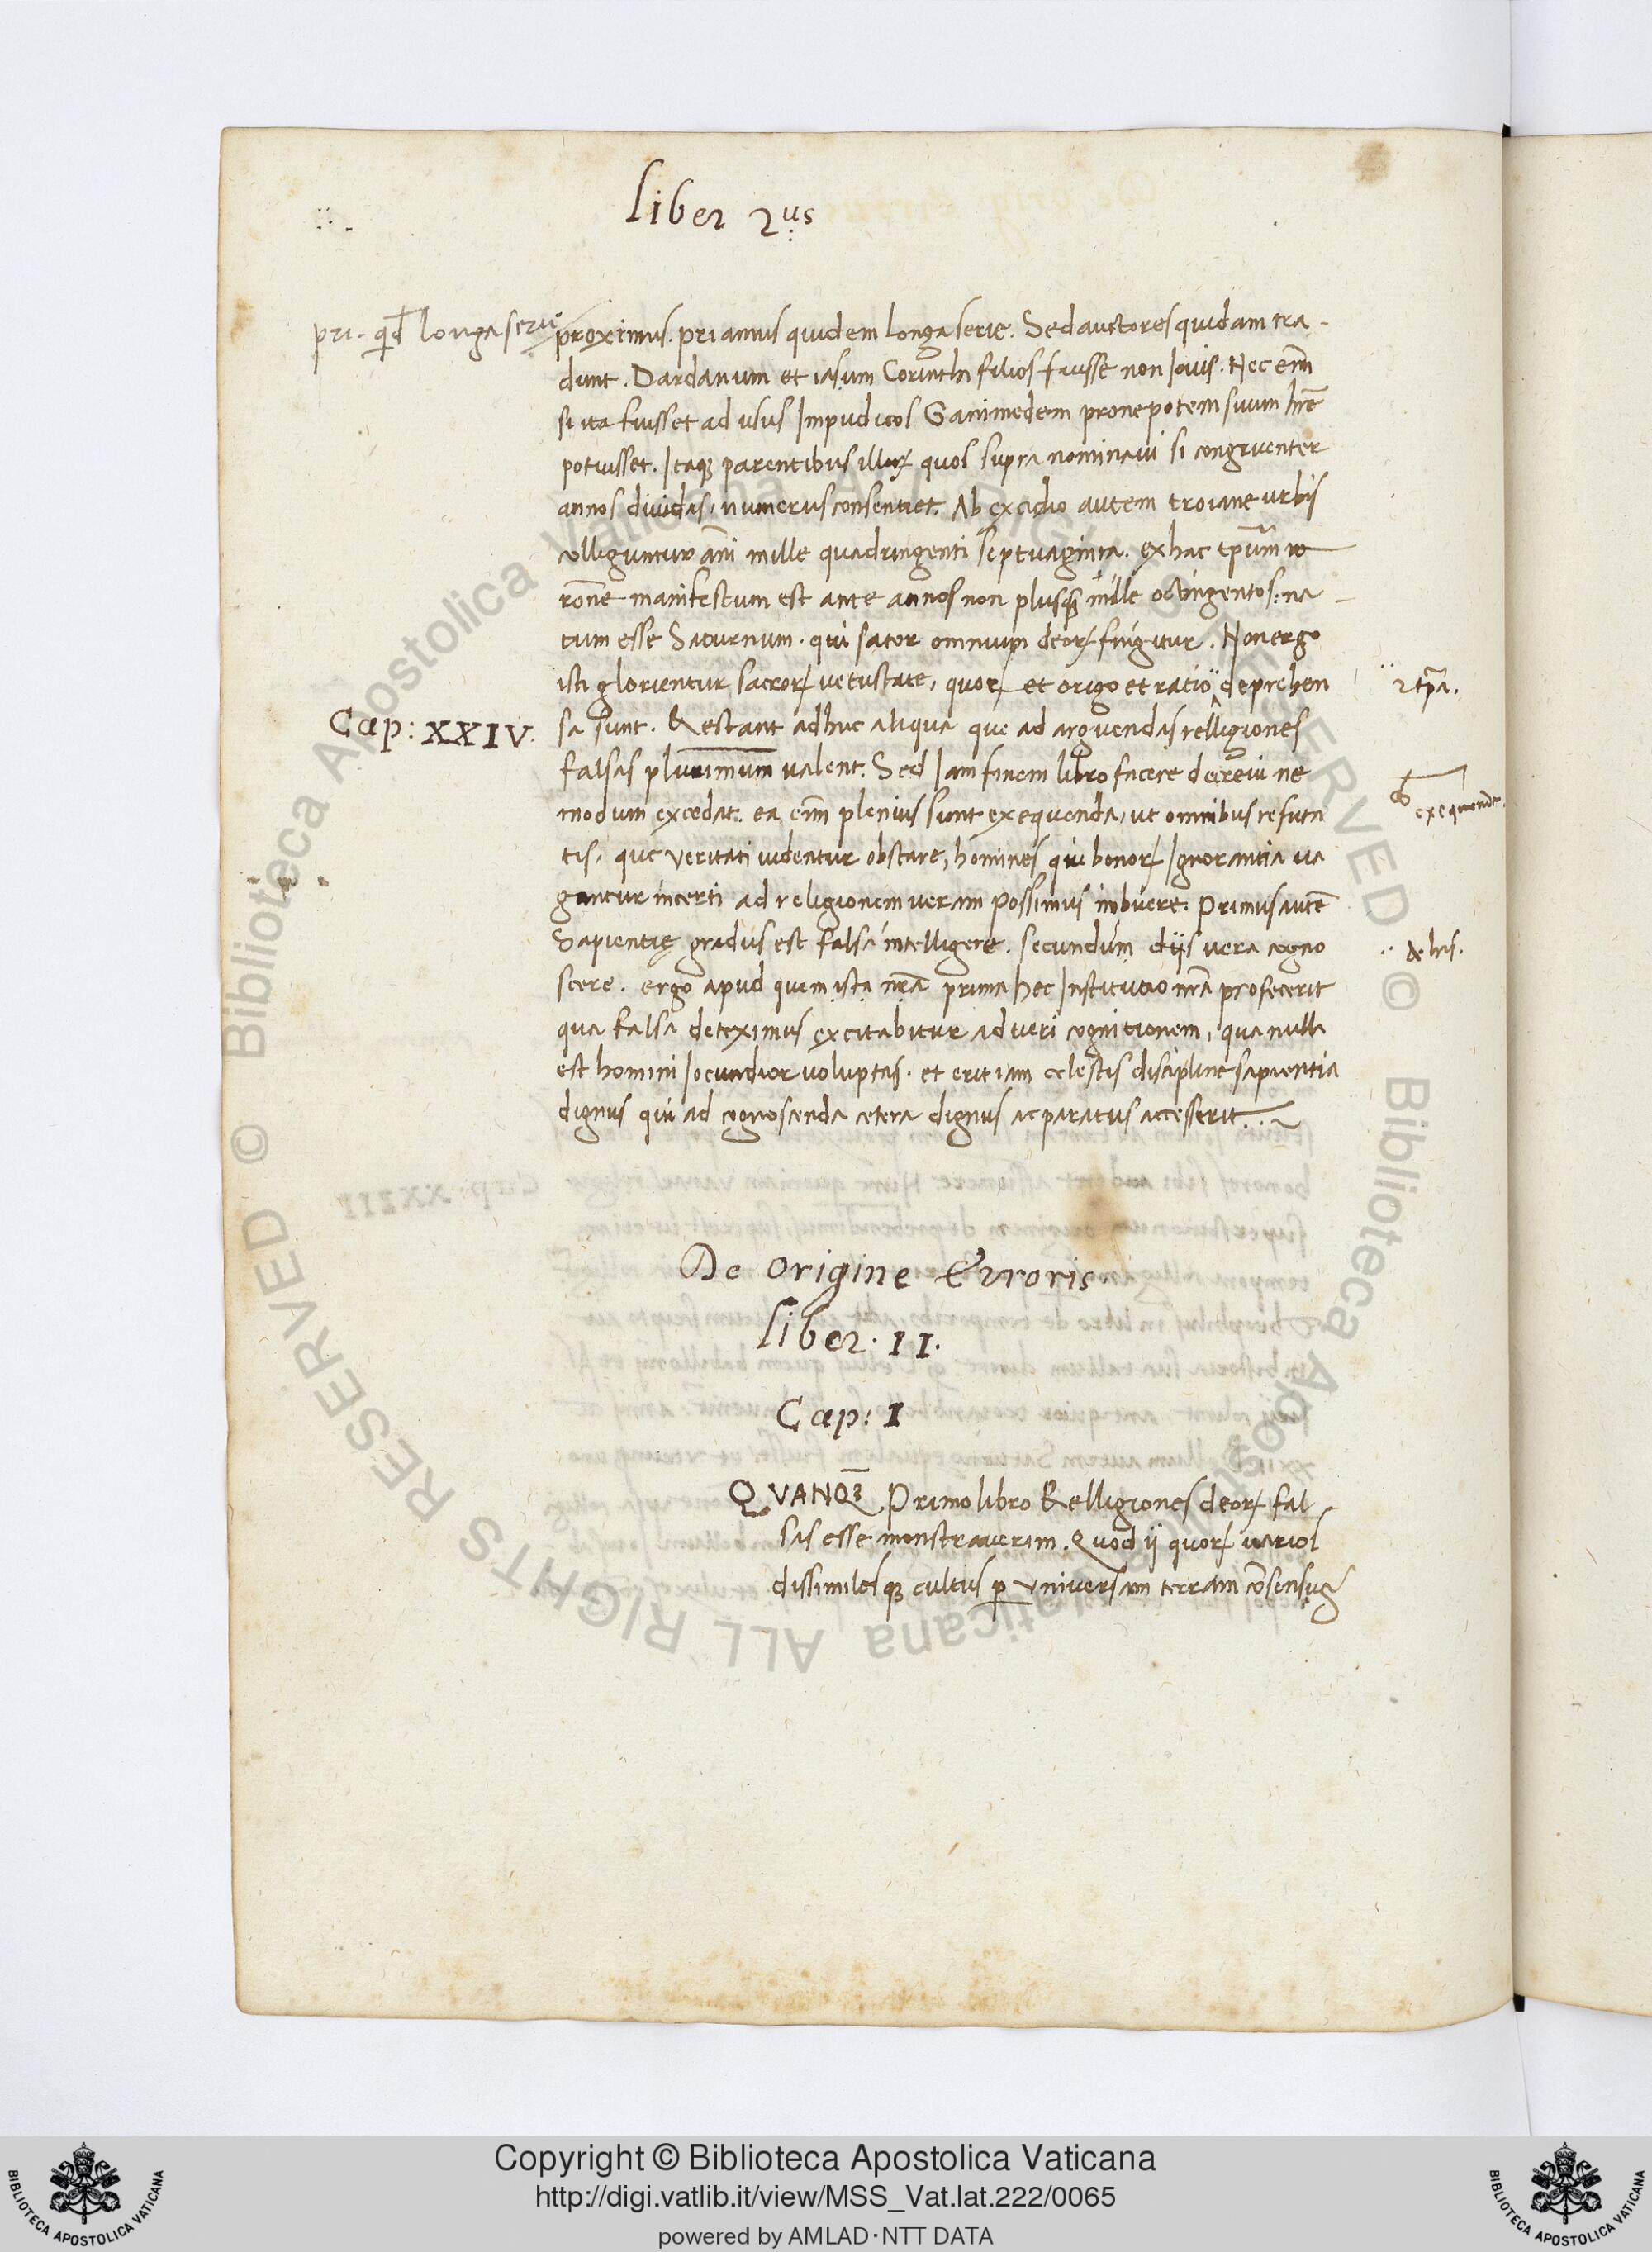 Liber 2us
pri. qd longa serie
proximus. priamus quidem longa serie. Sed auctores quidam tra-
dunt. Dardanum et iasum Corinthi filios fuisse non Iovis. Nec enĩ
si ita fuisset ad usus Impudicos Ganimedem pronepotem suum hrẽ
potuisset. Itaqꝫ parentibus illoꝝ quos supra nominavi si congruenter
annos dividas, numerus consentiet. Ab excidio autem troiane urbis
colliguntur ãni mille quadringenti septuaginta. ex hac tp̃um
rõne manifestum est ante annos non plusq̃ mille octingentos: na-
tum esse Saturnum. qui sator omnium deoꝝ fingitur. Non ergo
isti glorientur sacroꝝ vetustate, quoꝝ et origo et ratio deprehen
2 tp̃a.
Cap: XXIV.
sa sunt. Restant adhuc aliqua que ad arguendas relligiones
falsas plurimum valent. Sed Iam finem libro facere decrevi ne
modum excedat. ea enĩ plenius sunt exequenda, ut omnibus refuta
exequenda.
tis, que veritati videntur obstare, homines qui bonoꝝ Ignorantia va
gantur incerti ad religionem veram possimus imbuere. Primus autẽ
Sapientię gradus est falsa intelligere. secundum diis vera cogno
scere. ergo apud quem ista nrã prima hec Institutio nrã profecerit
qua falsa deteximus excitabitur ad veri cognitionem, qua nulla
est homini Iocundior voluptas. et erit iam celestis discipline sapientia
dignus qui ad cognoscenda cetera dignus ac paratus accesserit.
De Origine Erroris.
Liber. II.
Cap: I
QVANQꝫ Primo libro Relligiones deoꝝ fal-
sas esse monstraverim. Quod ii quoꝝ varios
dissimilesqꝫ cultus ꝑ universam terram cõsensus
Copyright © Biblioteca Apostolica Vaticana
http://digi.vatlib.it/view/MSS_Vat.lat.222/0065
powered by AMLAD·NTT DATA